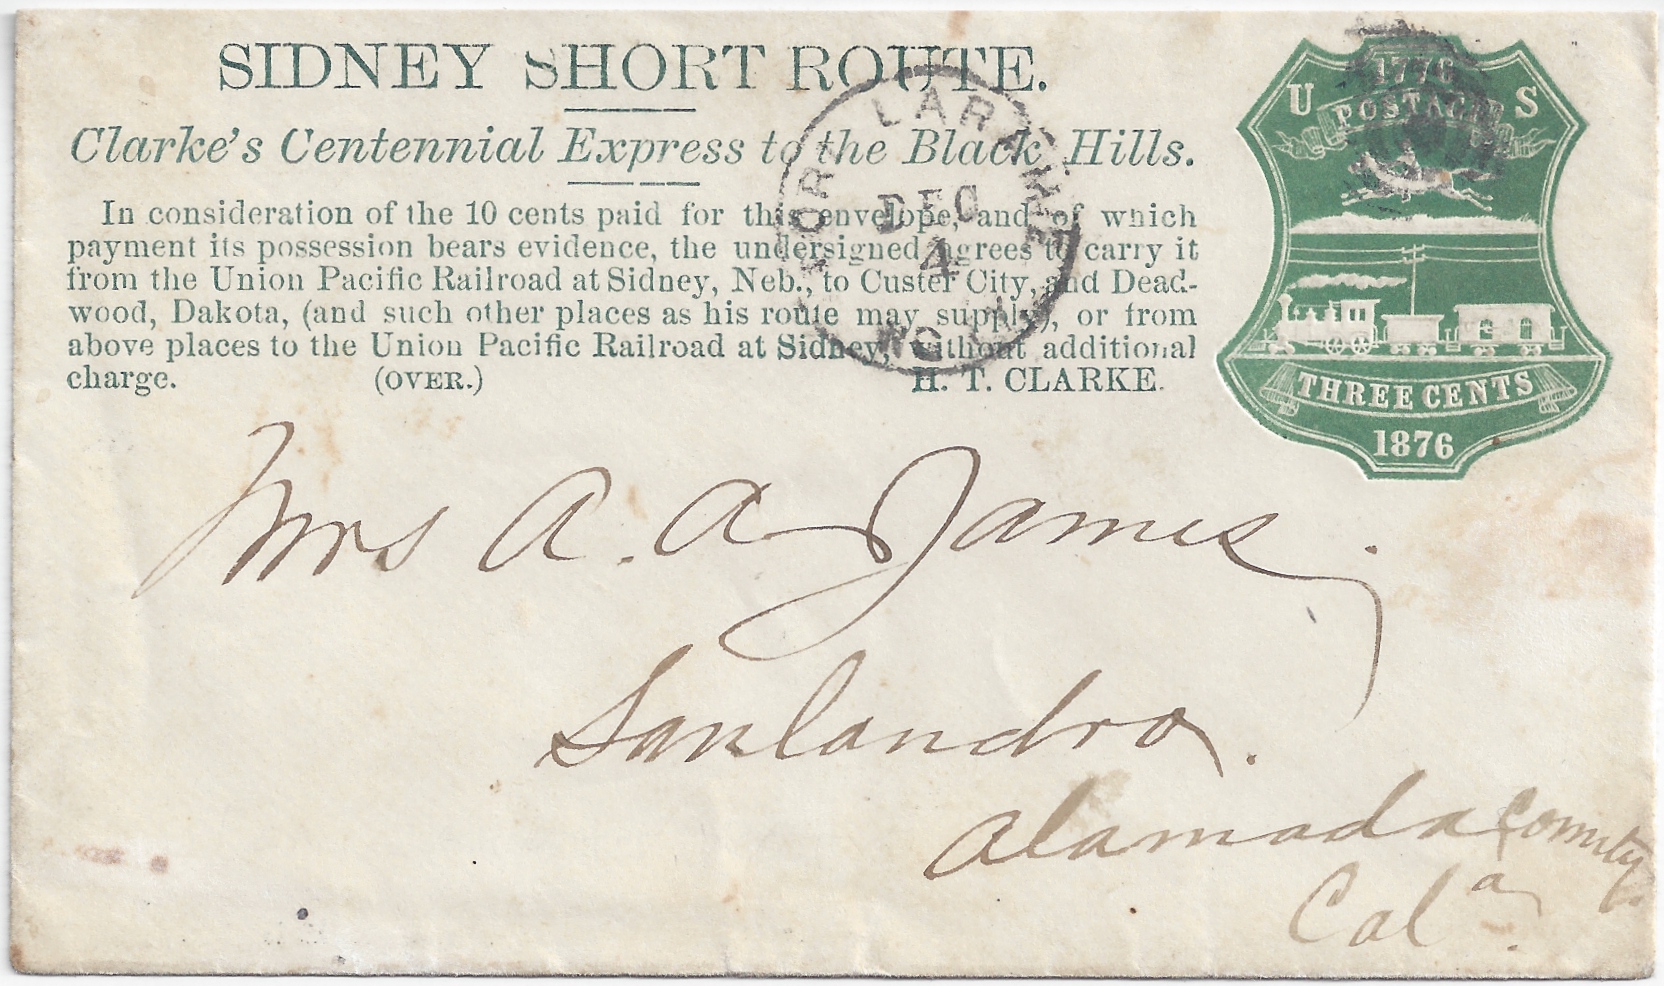 SIDNEY SHORT ROUTE.
Clarke's Centennial Express to the Black Hills.
In consideration of the 10 cents paid for this envelope, and of which
payment its possession bears evidence, the undersigned agrees to carry it
from the Union Pacific Railroad at Sidney, Neb., to Custer City, and Dead-
wood, Dakota, (and such other places as his route may supply), or from
above places to the Union Pacific Railroad at Sidney, without additional
charge. (OVER.) H. T. CLARKE.
FORT LARAMIE
DEC
4
WYO
1776
U S
POSTAGE
THREE CENTS
1876
Mrs A. A James.
Sanlandro.
Alamada County
Cala.